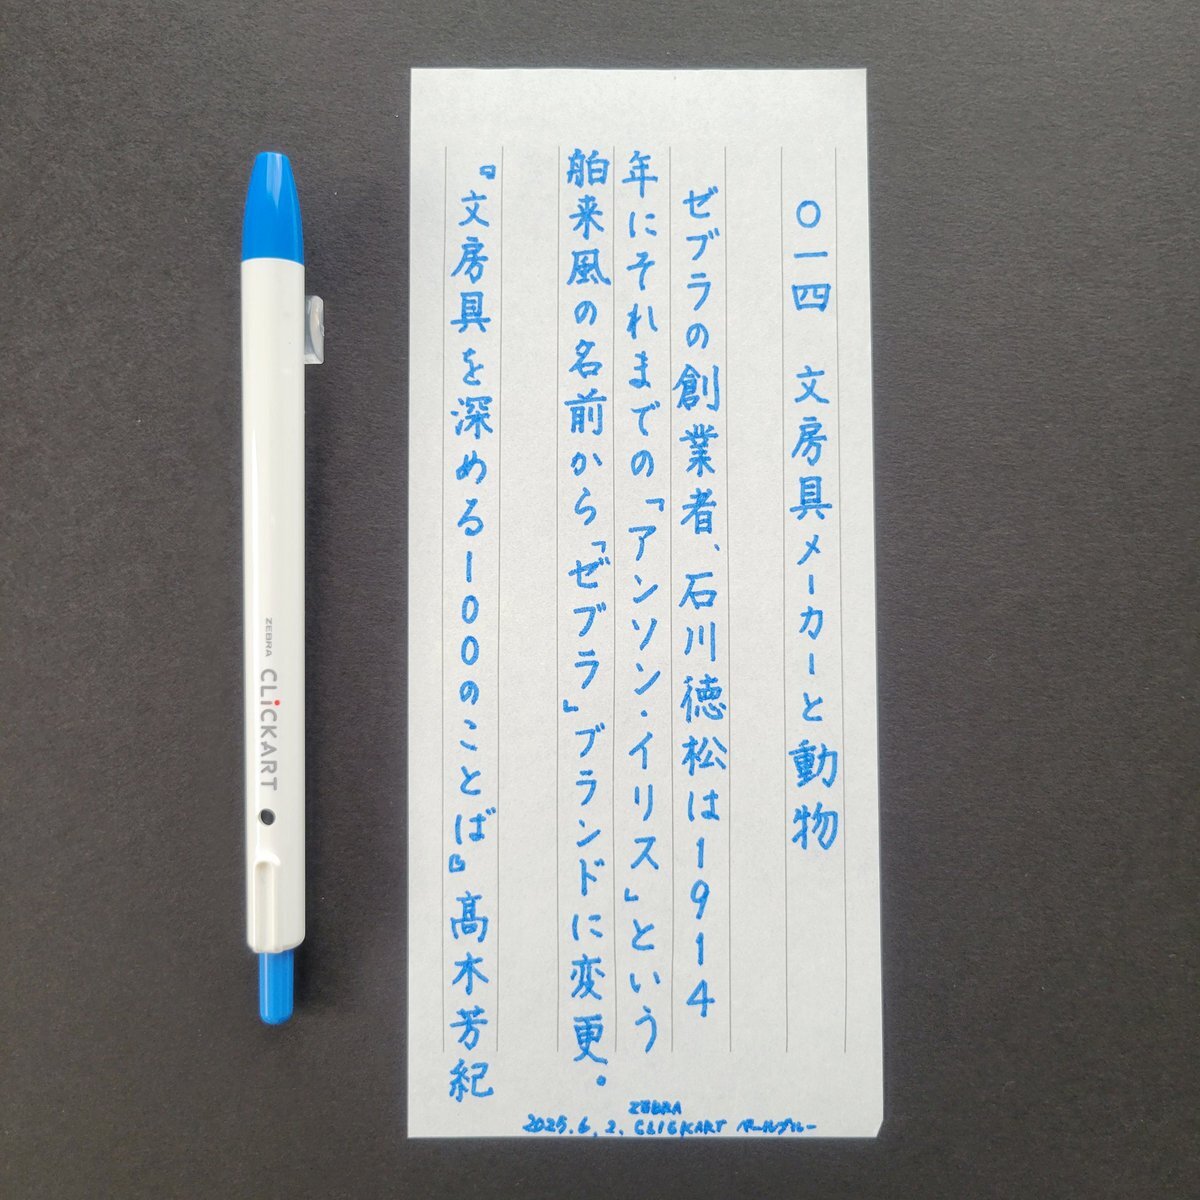 〇一四　文房具メーカーと動物
ゼブラの創業者、石川徳松は1914
年にそれまでの「アンソン・イリス」という
舶来風の名前から「ゼブラ」ブランドに変更。
『文房具を深める100のことば』髙木芳紀
ZEBRA
2025.6.2. CLICKART ペールブルー
ZEBRA CLiCKART